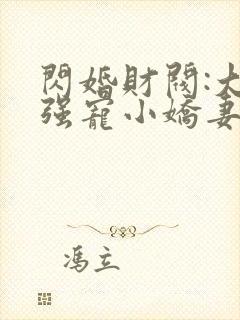 閃婚財閥:大
强寵小嬌妻
馮立